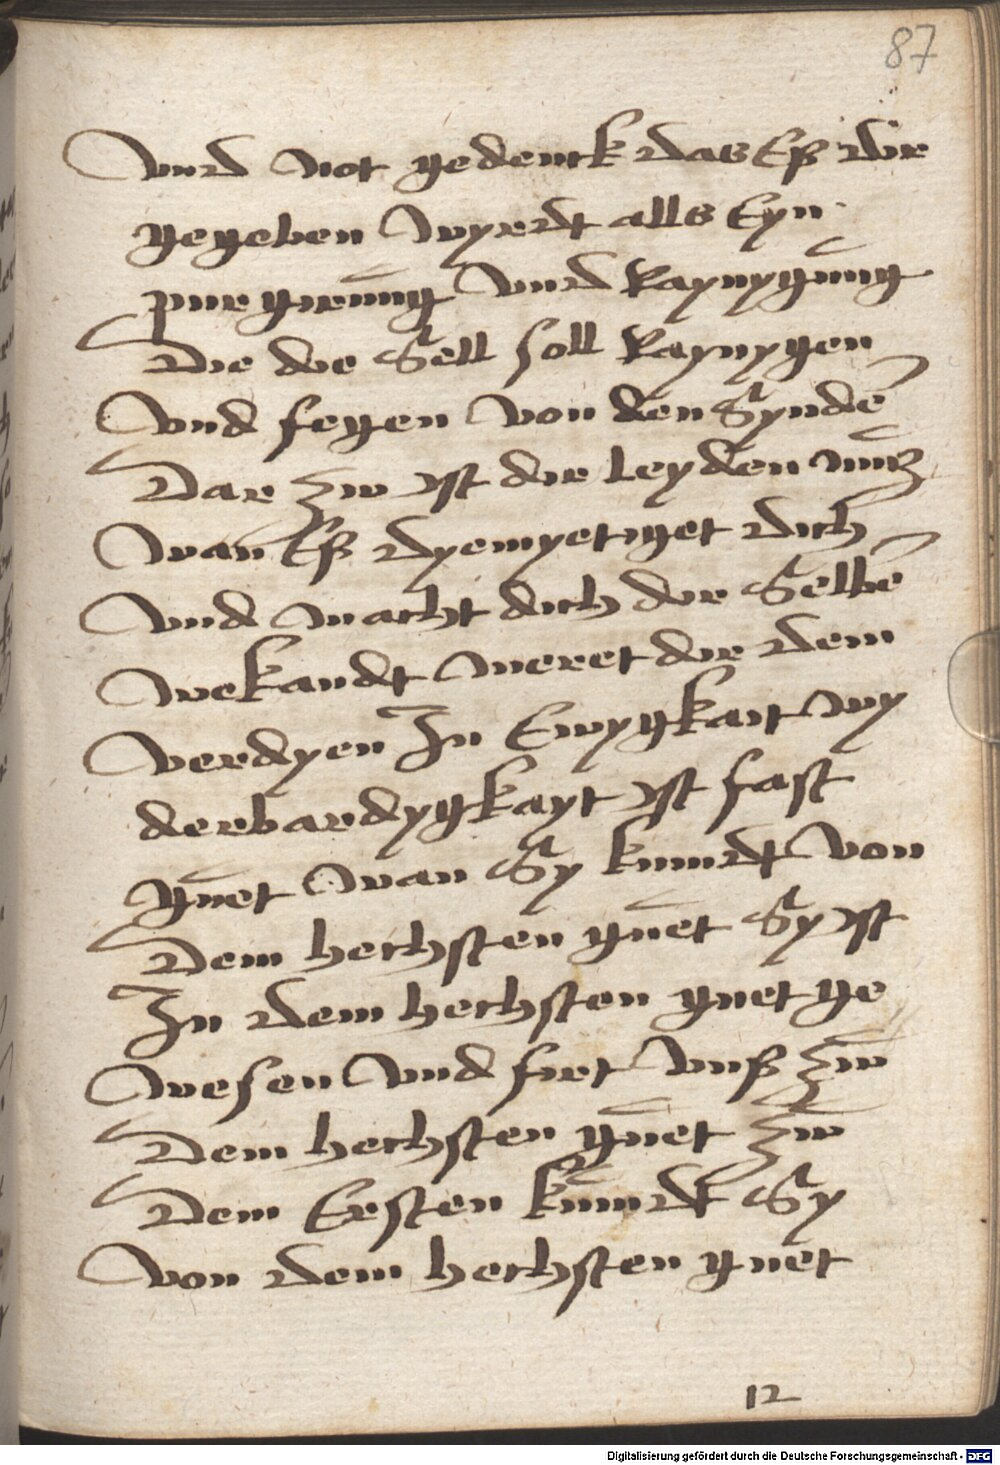 87
Vnd not gedenck das Eß dir
gegeben wyerdt alls Eyn
purgirung vnd Raynygung
Die die Sell soll Raynygen
Vnd fegen von den Synden̄
Dar zw yst dir leyden nutz
wan Eß dyemyetiget dich
Vnd macht dich dir Selbē
wekandt weret dir dem
Verdyen In Ewygkait wy
derbardygkayt yst fast
guet wan Sy kumdt von
Dem hechsten guet Sy yst
In dem hechsten guet ge
wesen vnd firt vnß zw
Dem hechsten guet zw
Dem Ersten kumdt Sy
Von dem hechsten guet
12
Digitalisierung gefördert durch die Deutsche Forschungsgemeinschaft - DFG